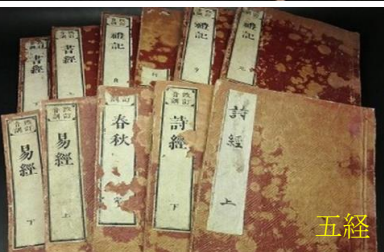 書經
書經 上
禮記
禮記
禮記
易經 下
易經 上
春秋
詩經 下
詩經 上
五経